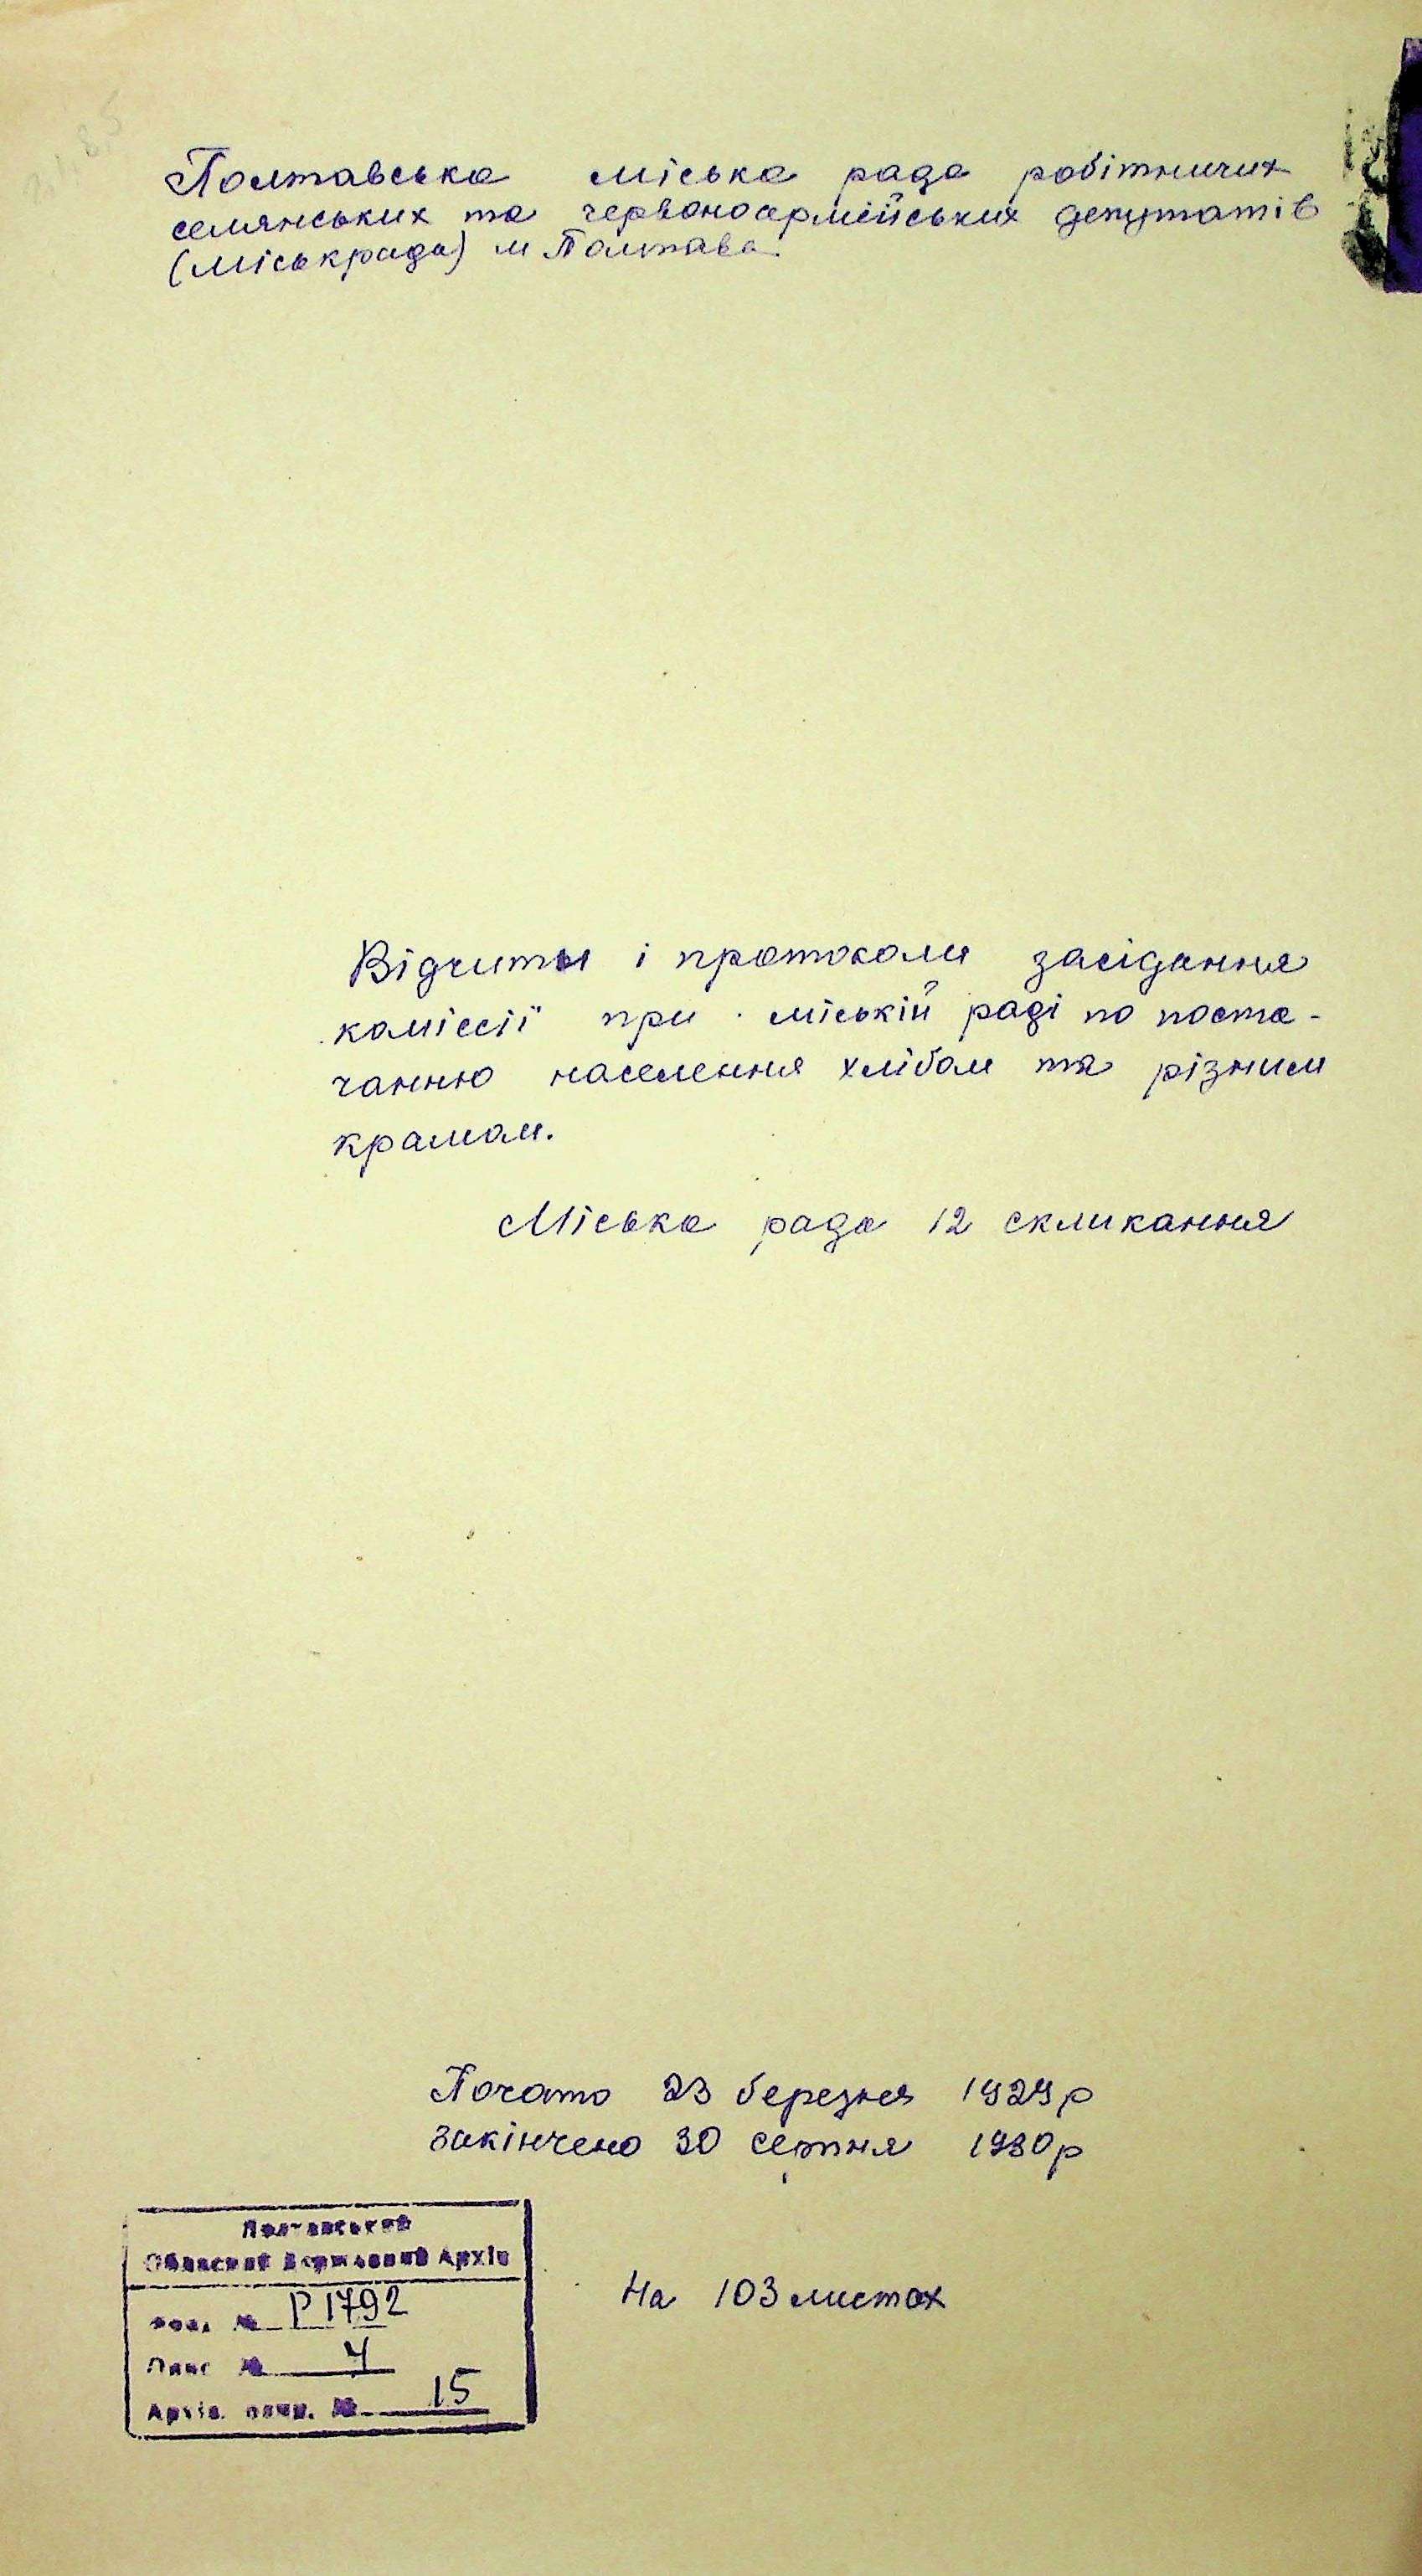 Полтавська міська рада робітничих
селянських та червоноармійських депутатів
(міськрада) м Полтава
Відчиты і протоколи засідання
коміссії при міській раді по поста-
чанню населення хлібом та різним
крамом.
Міська рада 12 скликання
Почато 23 березня 1929 р
Закінчено 30 серпня 1930 р
Полтавський
Обласний Державний Архів
Фонд № Р 1792
Опис № 4
Архів. № 15
На 103 листах